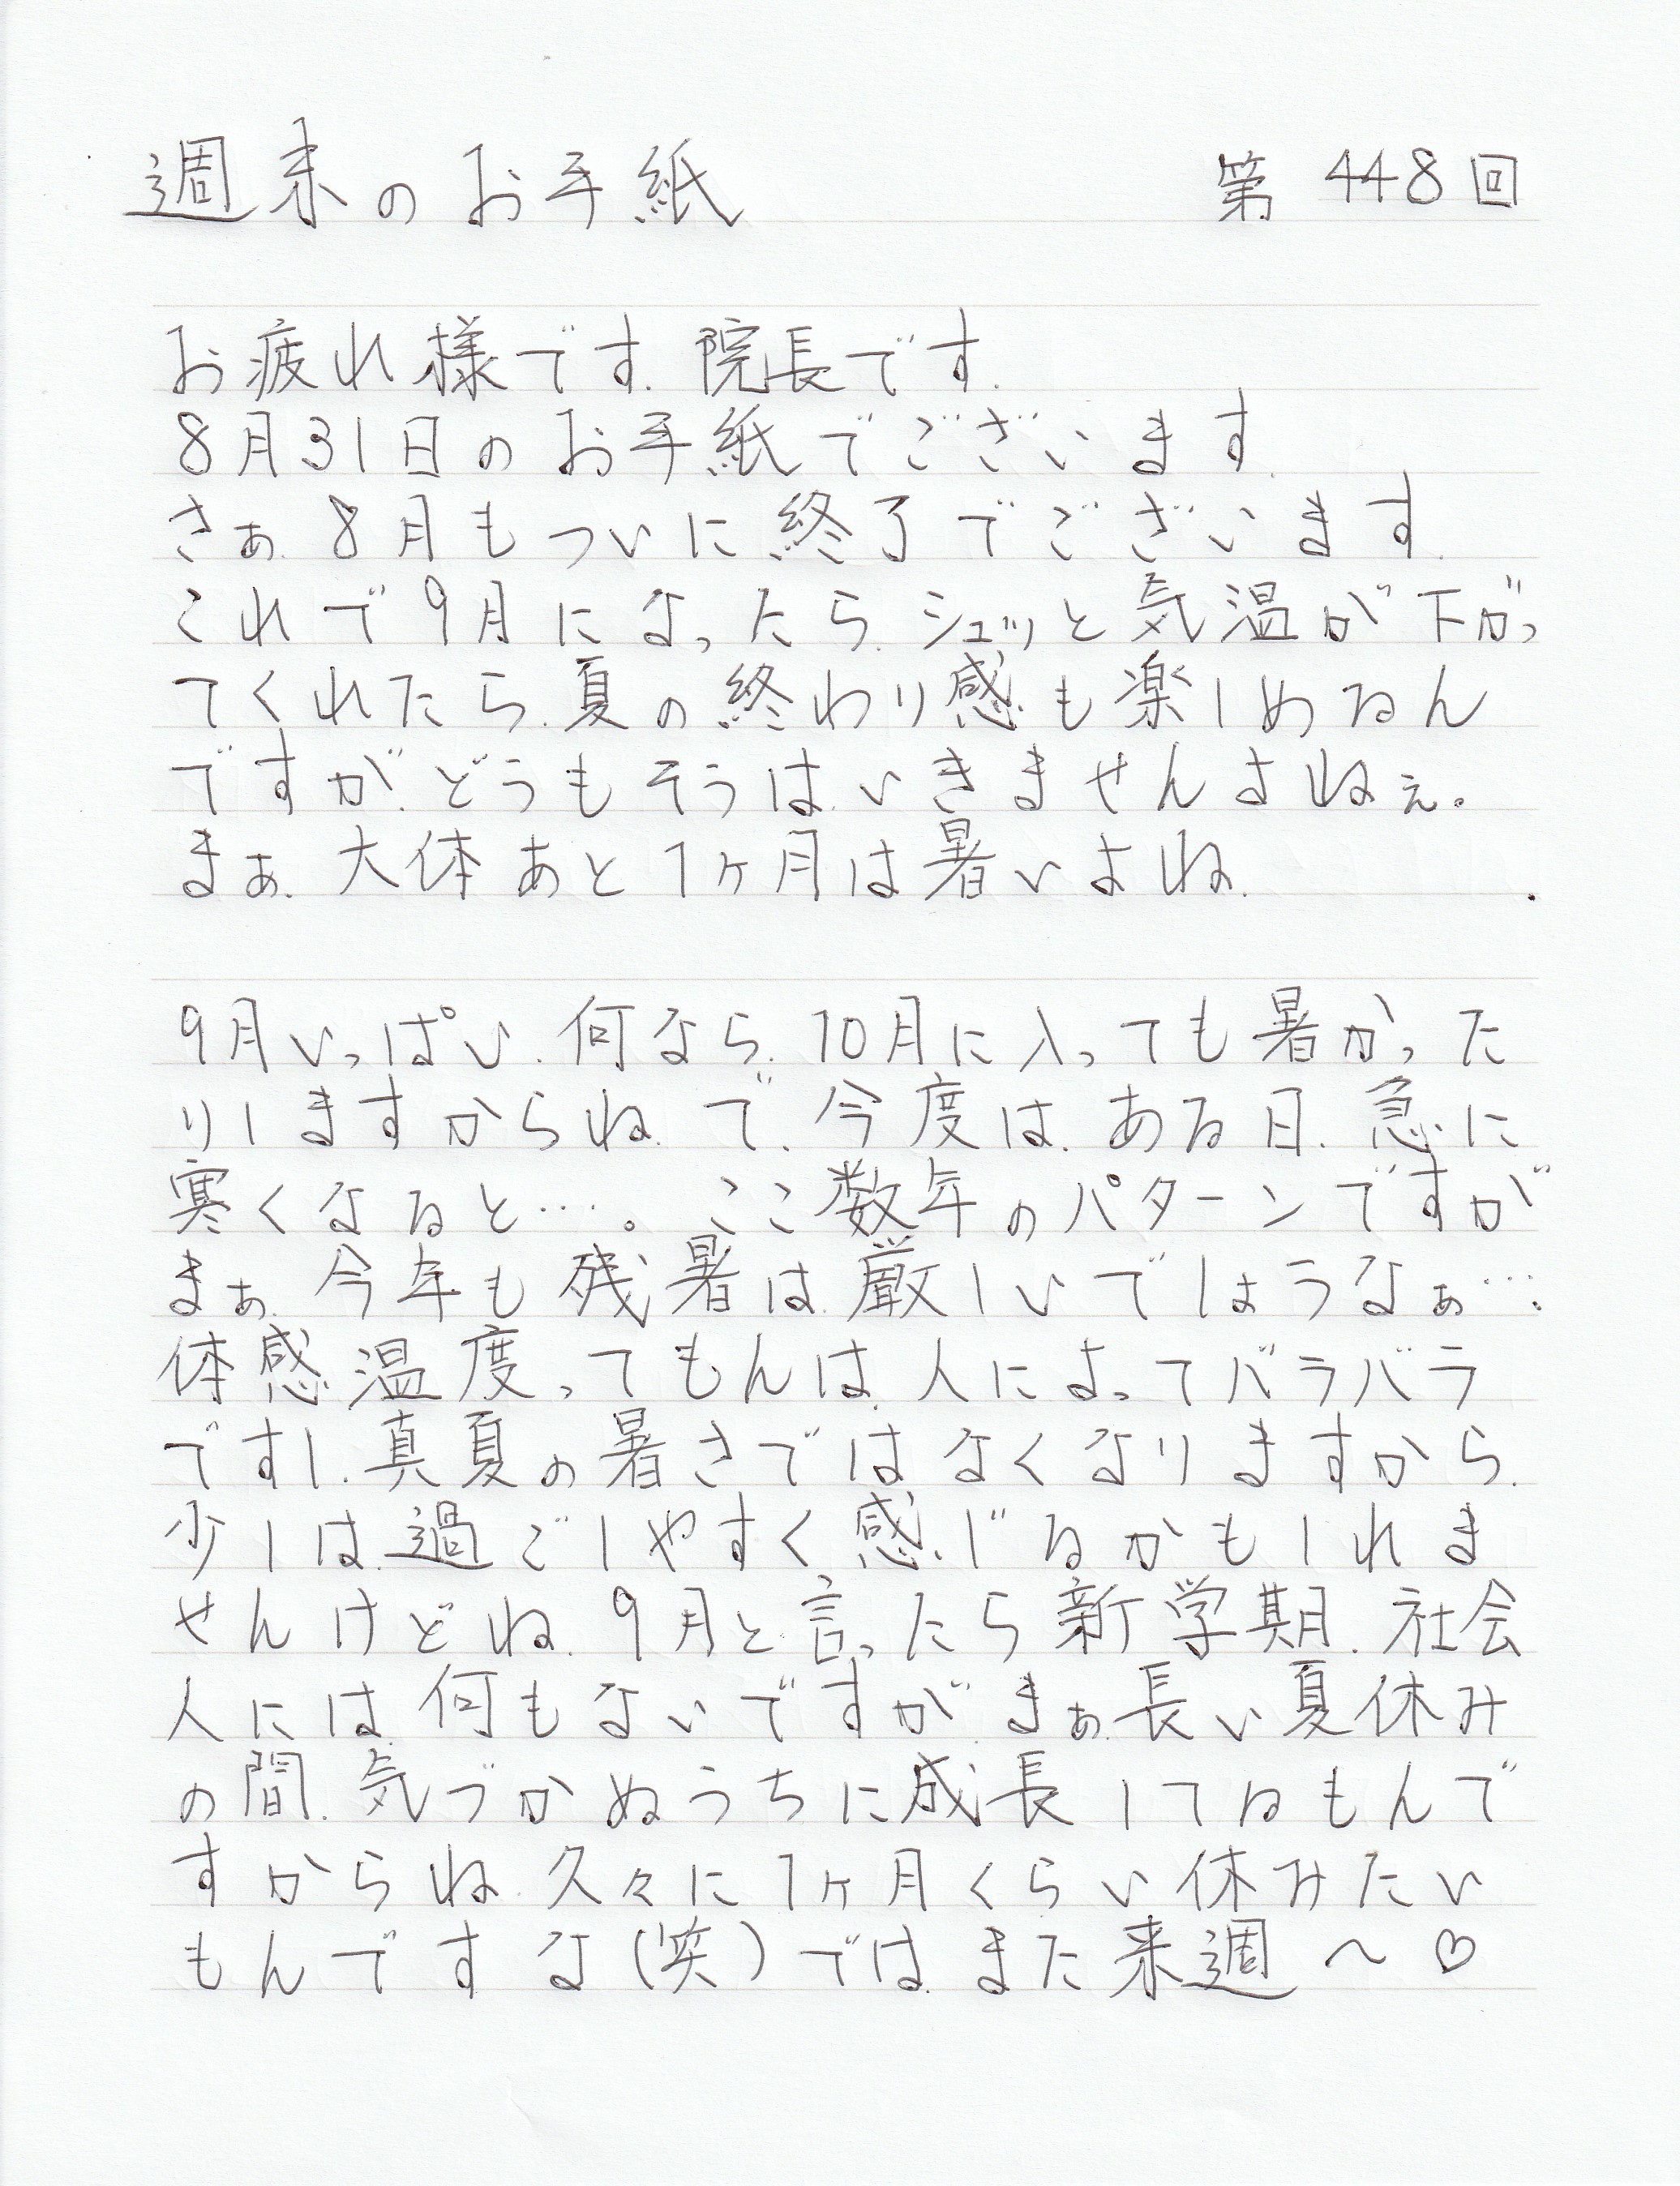 週末のお手紙 第448回
お疲れ様です.院長です.
8月31日のお手紙でございます.
さぁ.8月もついに終了でございます.
これで9月になったら.シュッと気温が下がっ
てくれたら.夏の終わり感も楽しめるん
ですが.どうもそうは.いきませんよねぇ。
まぁ.大体あと1ヶ月は暑いよね.
9月いっぱい.何なら.10月に入っても暑かった
りしますからね.で.今度は.ある日.急に
寒くなると…。ここ数年のパターンですが
まぁ.今年も残暑は.厳しいでしょうなぁ…
体感温度ってもんは.人によってバラバラ
ですし.真夏の暑さではなくなりますから.
少しは.過ごしやすく感じるかもしれま
せんけどね.9月と言ったら新学期.社会
人には.何もないですが.まぁ.長い夏休み
の間.気づかぬうちに成長してるもんで
すからね.久々に1ヶ月くらい休みたい
もんですな(笑)では.また来週〜♡